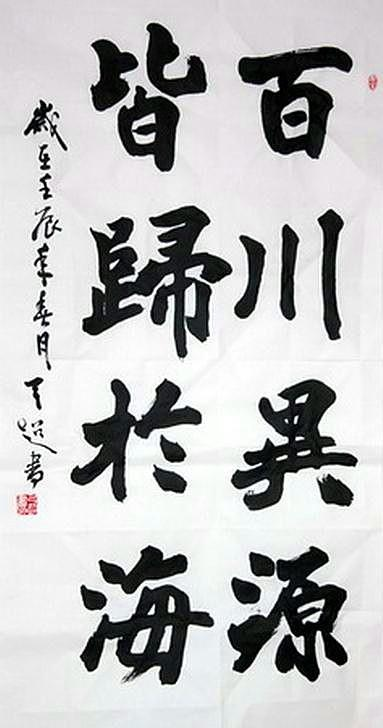 百川異源
皆歸於海
歲在壬辰年春月天超書